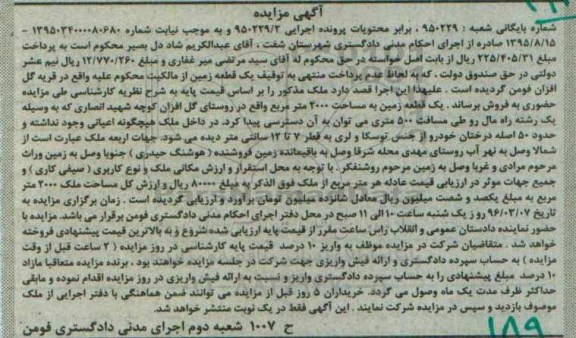 آگهی مزایده
شماره بایگانی شعبه : ۹۵۰۲۲۹ ، برابر محتویات پرونده اجرایی ۹۵۰۲۲۹/۲ و به موجب نیابت شماره ۱۳۹۵۰۳۴۰۰۰۰۸۰۶۸۰ -
۱۳۹۵/۸/۱۵ صادره از اجرای احکام مدنی دادگستری شهرستان شفت ، آقای عبدالکریم شاد دل بصیر محکوم است به پرداخت
مبلغ ۲۲۵/۴۰۵/۳۱ ریال از بابت اصل خواسته در حق محکوم له آقای سید مرتضی میر غفاری و مبلغ ۱۲/۷۷۰/۲۶۰ ریال نیم عشر
دولتی در حق صندوق دولت ، که به لحاظ عدم پرداخت منتهی به توقیف یک قطعه زمین از مالکیت محکوم علیه واقع در قریه گل
افزان فومن گردیده است . علیهذا این اجرا قصد دارد ملک مذکور را بر اساس قیمت پایه به شرح نظریه کارشناسی طی مزایده
حضوری به فروش برساند . یک قطعه زمین به مساحت ۲۰۰۰ متر مربع واقع در روستای گل افزان کوچه شهید انصاری که به وسیله
یک رشته راه مال رو طی مسافت ۵۰۰ متری می توان به آن دسترسی پیدا کرد. در داخل ملک هیچگونه اعیانی وجود نداشته و
حدود ۵۰ اصله درختان خودرو از جنس توسکا و لری به قطر ۷ تا ۱۲ سانتی متر دیده می شود. جهات اربعه ملک عبارت است از
شمالا وصل به نهر آب روستای مهدی محله شرقا وصل به باقیمانده زمین فروشنده ( هوشنگ حیدری ) جنوبا وصل به زمین وراث
مرحوم مرادی و غربا وصل به زمین مرحوم روشنفکر . با توجه به محل استقرار و ارزش مکانی ملک و نوع کاربری ( صیفی کاری ) و
جمیع جهات موثر در ارزیابی قیمت عادله هر متر مربع از ملک فوق الذکر به مبلغ ۸۰۰۰۰ ریال و ارزش کل مساحت ملک ۲۰۰۰ متر
مربع به مبلغ یکصد و شصت میلیون ریال معادل شانزده میلیون تومان برآورد و ارزیابی گردیده است . زمان برگزاری مزایده به
تاریخ ۹۶/۰۳/۰۷ روز یک شنبه ساعت ۱۰ الی ۱۱ صبح در محل دفتر اجرای احکام مدنی دادگستری فومن برقرار می باشد. مزایده با
حضور نماینده دادستان عمومی و انقلاب راس ساعت مقرر از قیمت پایه ارزیابی شده شروع و به بالاترین قیمت پیشنهادی فروخته
خواهد شد . متقاضیان شرکت در مزایده موظف به واریز ۱۰ درصد قیمت پایه کارشناسی در روز مزایده ( ۲ ساعت قبل از وقت
مزایده ) به حساب سپرده دادگستری و ارائه فیش واریزی جهت شرکت در جلسه مزایده خواهند بود ، برنده مزایده متعاقبا مازاد
۱۰ درصد مبلغ پیشنهادی را به حساب سپرده دادگستری واریز و نسبت به ارائه فیش واریزی در روز مزایده اقدام نموده و مابقی
حداکثر ظرف مدت یک ماه وصول می گردد. خریداران ۵ روز قبل از مزایده می توانند ضمن هماهنگی با دفتر اجرایی از ملک
موصوف بازدید و سپس در مزایده شرکت نمایند . این آگهی فقط در یک نوبت منتشر خواهد شد.
ح ۱۰۰۷ شعبه دوم اجرای مدنی دادگستری فومن
۱۸۹